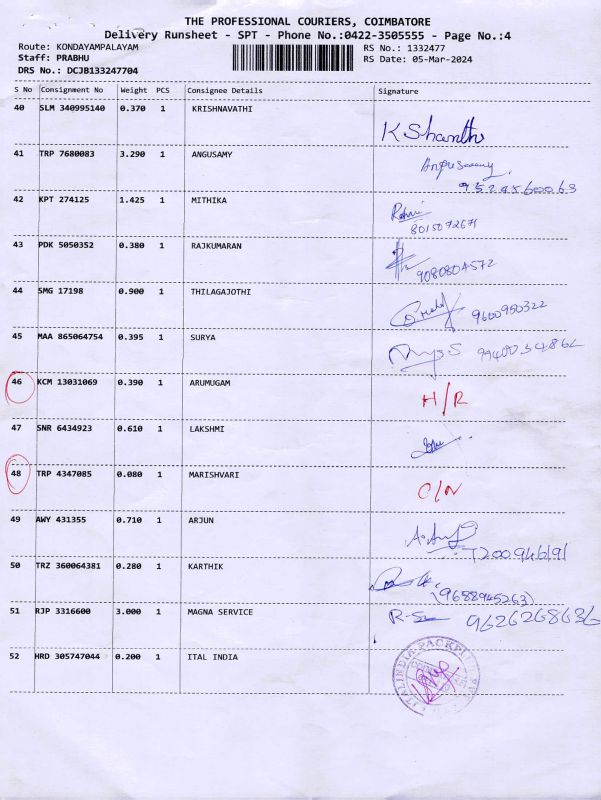 THE PROFESSIONAL COURIERS, COIMBATORE
Delivery Runsheet - SPT - Phone No.:0422-3505555 - Page No.:4
Route: KONDAYAMPALAYAM RS No.: 1332477
Staff: PRABHU RS Date: 05-Mar-2024
DRS No.: DCJB133247704
S No Consignment No Weight PCS Consignee Details Signature
40 SLM 340995140 0.370 1 KRISHNAVATHI
K Shanthi
41 TRP 7680083 3.290 1 ANGUSAMY
Angusamy
9524560063
42 KPT 274125 1.425 1 MITHIKA
8015072671
43 PDK 5050352 0.380 1 RAJKUMARAN
9080804572
44 SMG 17198 0.900 1 THILAGAJOTHI
9600950322
45 MAA 865064754 0.395 1 SURYA
46 KCM 13031069 0.390 1 ARUMUGAM
H/R
47 SNR 6434923 0.610 1 LAKSHMI
48 TRP 4347085 0.080 1 MARISHVARI
O/N
49 AWY 431355 0.710 1 ARJUN
50 TRZ 360064381 0.280 1 KARTHIK
(9688945263)
51 RJP 3316600 3.000 1 MAGNA SERVICE
9626268636
52 HRD 305747044 0.200 1 ITAL INDIA